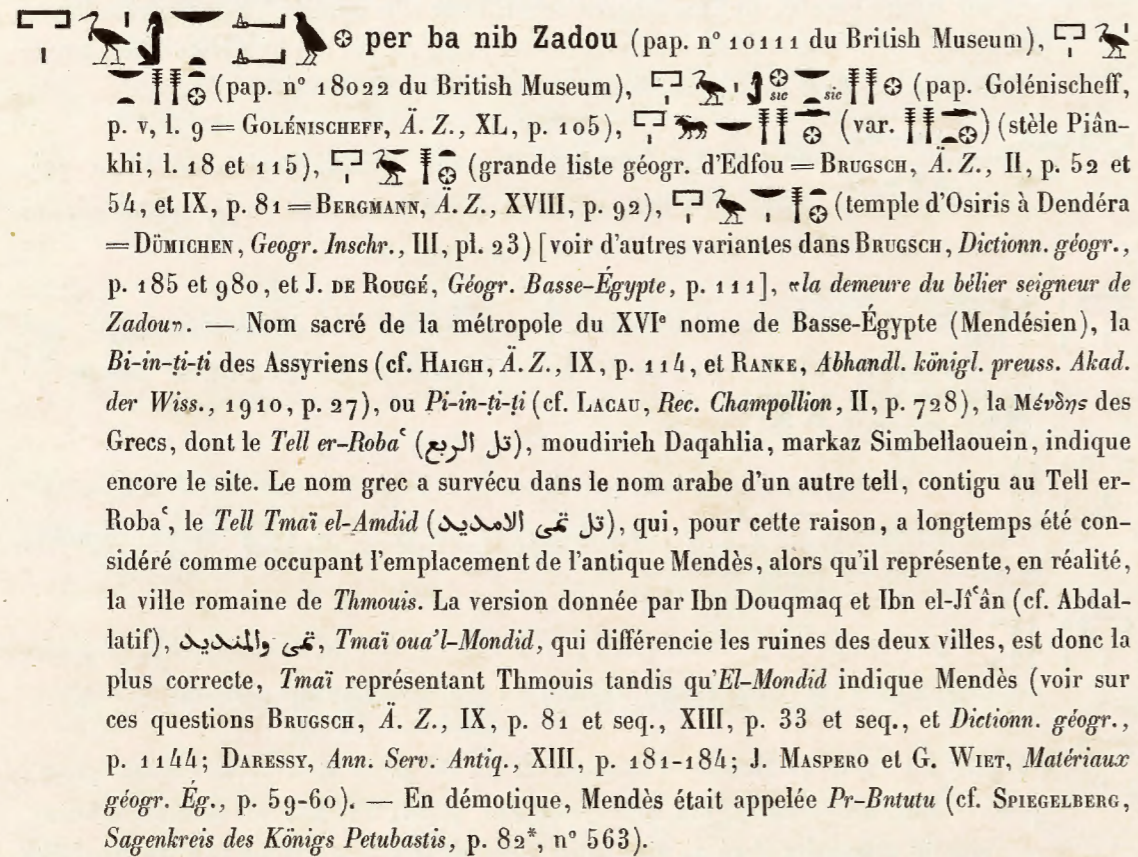 per ba nib Zadou (pap. n° 10111 du British Museum),
(pap. n° 18022 du British Museum), sic sic (pap. Golénischeff,
p. v, l. 9 = GOLÉNISCHEFF, Ä. Z., XL, p. 105), (var. ) (stèle Piân-
khi, l. 18 et 115), (grande liste géogr. d'Edfou = BRUGSCH, Ä. Z., II, p. 52 et
54, et IX, p. 81 = BERGMANN, Ä. Z., XVIII, p. 92), (temple d'Osiris à Dendéra
= DÜMICHEN, Geogr. Inschr., III, pl. 23) [voir d'autres variantes dans BRUGSCH, Dictionn. géogr.,
p. 185 et 980, et J. DE ROUGÉ, Géogr. Basse-Égypte, p. 111], «la demeure du bélier seigneur de
Zadou». — Nom sacré de la métropole du XVIe nome de Basse-Égypte (Mendésien), la
Bi-in-ṭi-ṭi des Assyriens (cf. HAIGH, Ä. Z., IX, p. 114, et RANKE, Abhandl. königl. preuss. Akad.
der Wiss., 1910, p. 27), ou Pi-in-ṭi-ṭi (cf. LACAU, Rec. Champollion, II, p. 728), la Μένδης des
Grecs, dont le Tell er-Robaʿ (تل الربع), moudirieh Daqahlia, markaz Simbellaouein, indique
encore le site. Le nom grec a survécu dans le nom arabe d'un autre tell, contigu au Tell er-
Robaʿ, le Tell Tmaï el-Amdid (تل تمى الامديد), qui, pour cette raison, a longtemps été con-
sidéré comme occupant l'emplacement de l'antique Mendès, alors qu'il représente, en réalité,
la ville romaine de Thmouis. La version donnée par Ibn Douqmaq et Ibn el-Jîʿân (cf. Abdal-
latif), تمى والمنديد, Tmaï oua'l-Mondid, qui différencie les ruines des deux villes, est donc la
plus correcte, Tmaï représentant Thmouis tandis qu'El-Mondid indique Mendès (voir sur
ces questions BRUGSCH, Ä. Z., IX, p. 81 et seq., XIII, p. 33 et seq., et Dictionn. géogr.,
p. 1144; DARESSY, Ann. Serv. Antiq., XIII, p. 181-184; J. MASPERO et G. WIET, Matériaux
géogr. Ég., p. 59-60). — En démotique, Mendès était appelée Pr-Bntutu (cf. SPIEGELBERG,
Sagenkreis des Königs Petubastis, p. 82*, n° 563).